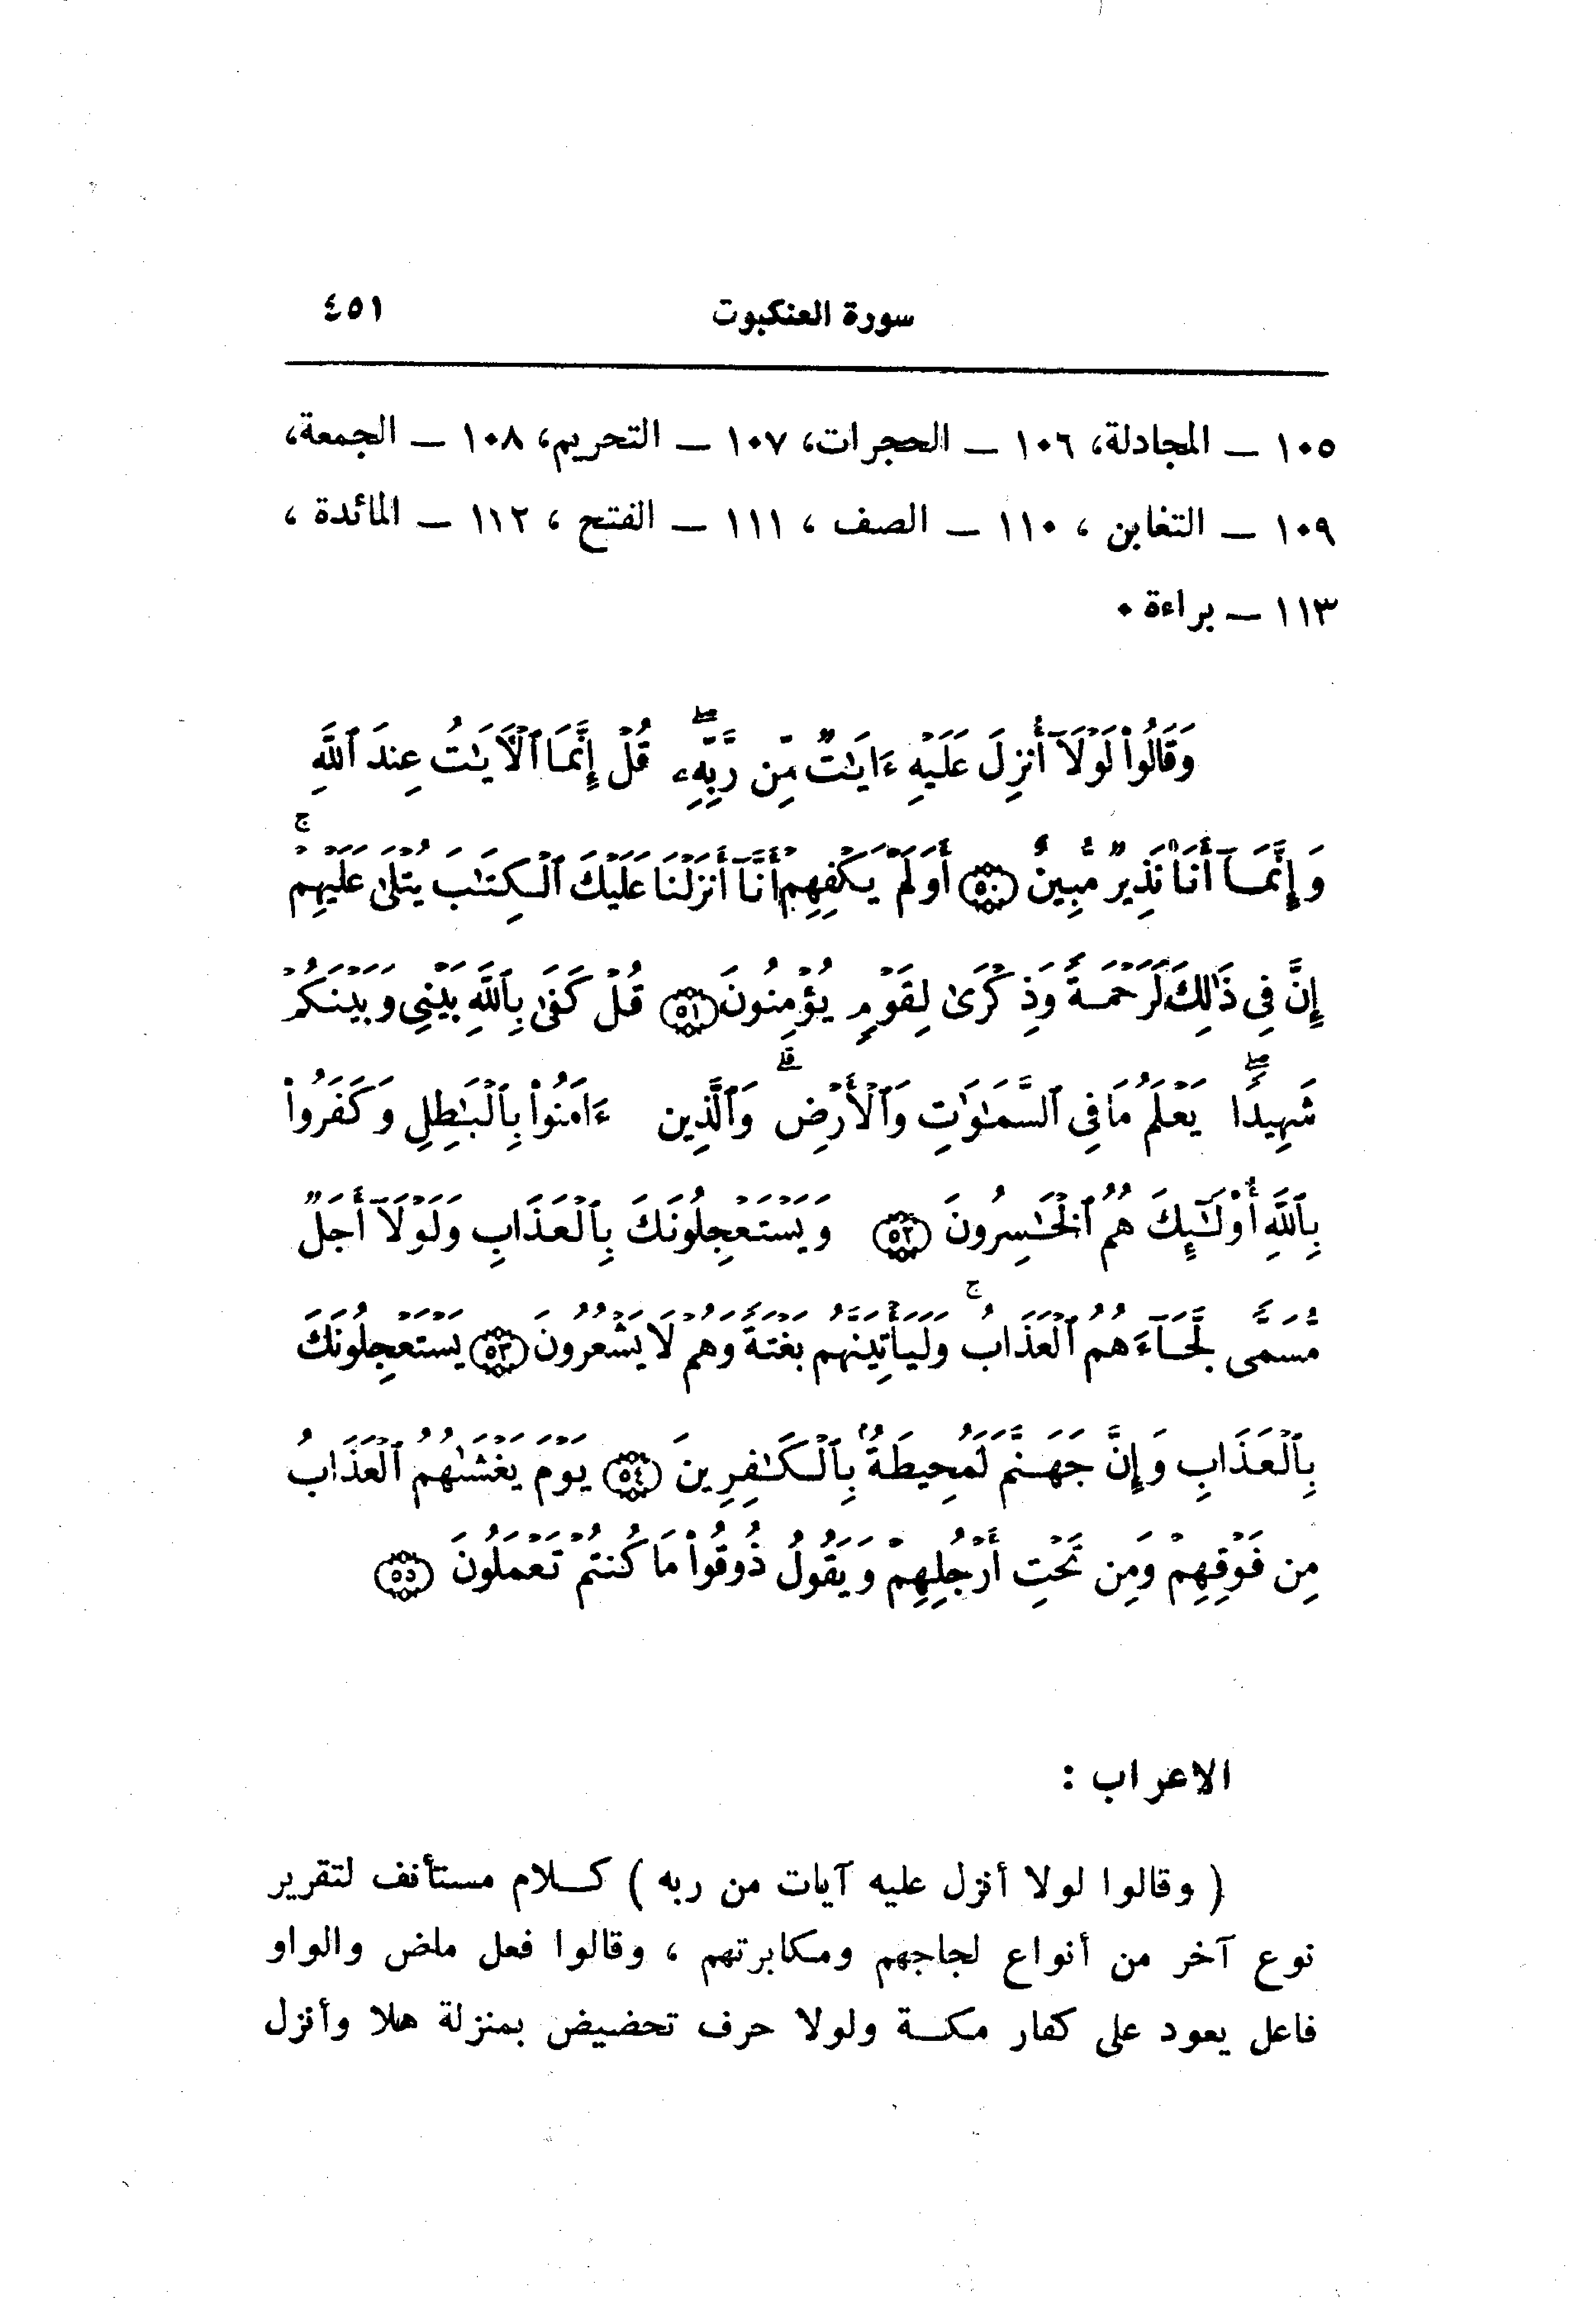 سورة العنكبوت ٤٥١
١٠٥ — المجادلة، ١٠٦ — الحجرات، ١٠٧ — التحريم، ١٠٨ — الجمعة،
١٠٩ — التغابن ، ١١٠ — الصف ، ١١١ — الفتح ، ١١٢ — المائدة ،
١١٣ — براءة ٠
وَقَالُواْ لَوْلَآ أُنزِلَ عَلَيْهِ ءَايَٰتٌ مِّن رَّبِّهِۦ ۖ قُلْ إِنَّمَا ٱلْأَيَٰتُ عِندَ ٱللَّهِ
وَإِنَّمَآ أَنَا۠ نَذِيرٌ مُّبِينٌ ﴿٥٠﴾ أَوَلَمْ يَكْفِهِمْ أَنَّآ أَنزَلْنَا عَلَيْكَ ٱلْكِتَٰبَ يُتْلَىٰ عَلَيْهِمْ ۚ
إِنَّ فِى ذَٰلِكَ لَرَحْمَةً وَذِكْرَىٰ لِقَوْمٍ يُؤْمِنُونَ ﴿٥١﴾ قُلْ كَفَىٰ بِٱللَّهِ بَيْنِى وَبَيْنَكُمْ
شَهِيدًا ۖ يَعْلَمُ مَا فِى ٱلسَّمَٰوَٰتِ وَٱلْأَرْضِ ۗ وَٱلَّذِينَ ءَامَنُواْ بِٱلْبَٰطِلِ وَكَفَرُواْ
بِٱللَّهِ أُوْلَٰٓئِكَ هُمُ ٱلْخَٰسِرُونَ ﴿٥٢﴾ وَيَسْتَعْجِلُونَكَ بِٱلْعَذَابِ وَلَوْلَآ أَجَلٌ
مُّسَمًّى لَّجَآءَهُمُ ٱلْعَذَابُ ۚ وَلَيَأْتِيَنَّهُم بَغْتَةً وَهُمْ لَا يَشْعُرُونَ ﴿٥٣﴾ يَسْتَعْجِلُونَكَ
بِٱلْعَذَابِ وَإِنَّ جَهَنَّمَ لَمُحِيطَةٌۢ بِٱلْكَٰفِرِينَ ﴿٥٤﴾ يَوْمَ يَغْشَىٰهُمُ ٱلْعَذَابُ
مِن فَوْقِهِمْ وَمِن تَحْتِ أَرْجُلِهِمْ وَيَقُولُ ذُوقُواْ مَا كُنتُمْ تَعْمَلُونَ ﴿٥٥﴾
الاعراب :
( وقالوا لولا أنزل عليه آيات من ربه ) كــلام مستأنف لتقرير
نوع آخر من أنواع لجاجهم ومكابرتهم ، وقالوا فعل ماض والواو
فاعل يعود على كفار مكــة ولولا حرف تحضيض بمنزلة هلا وأنزل